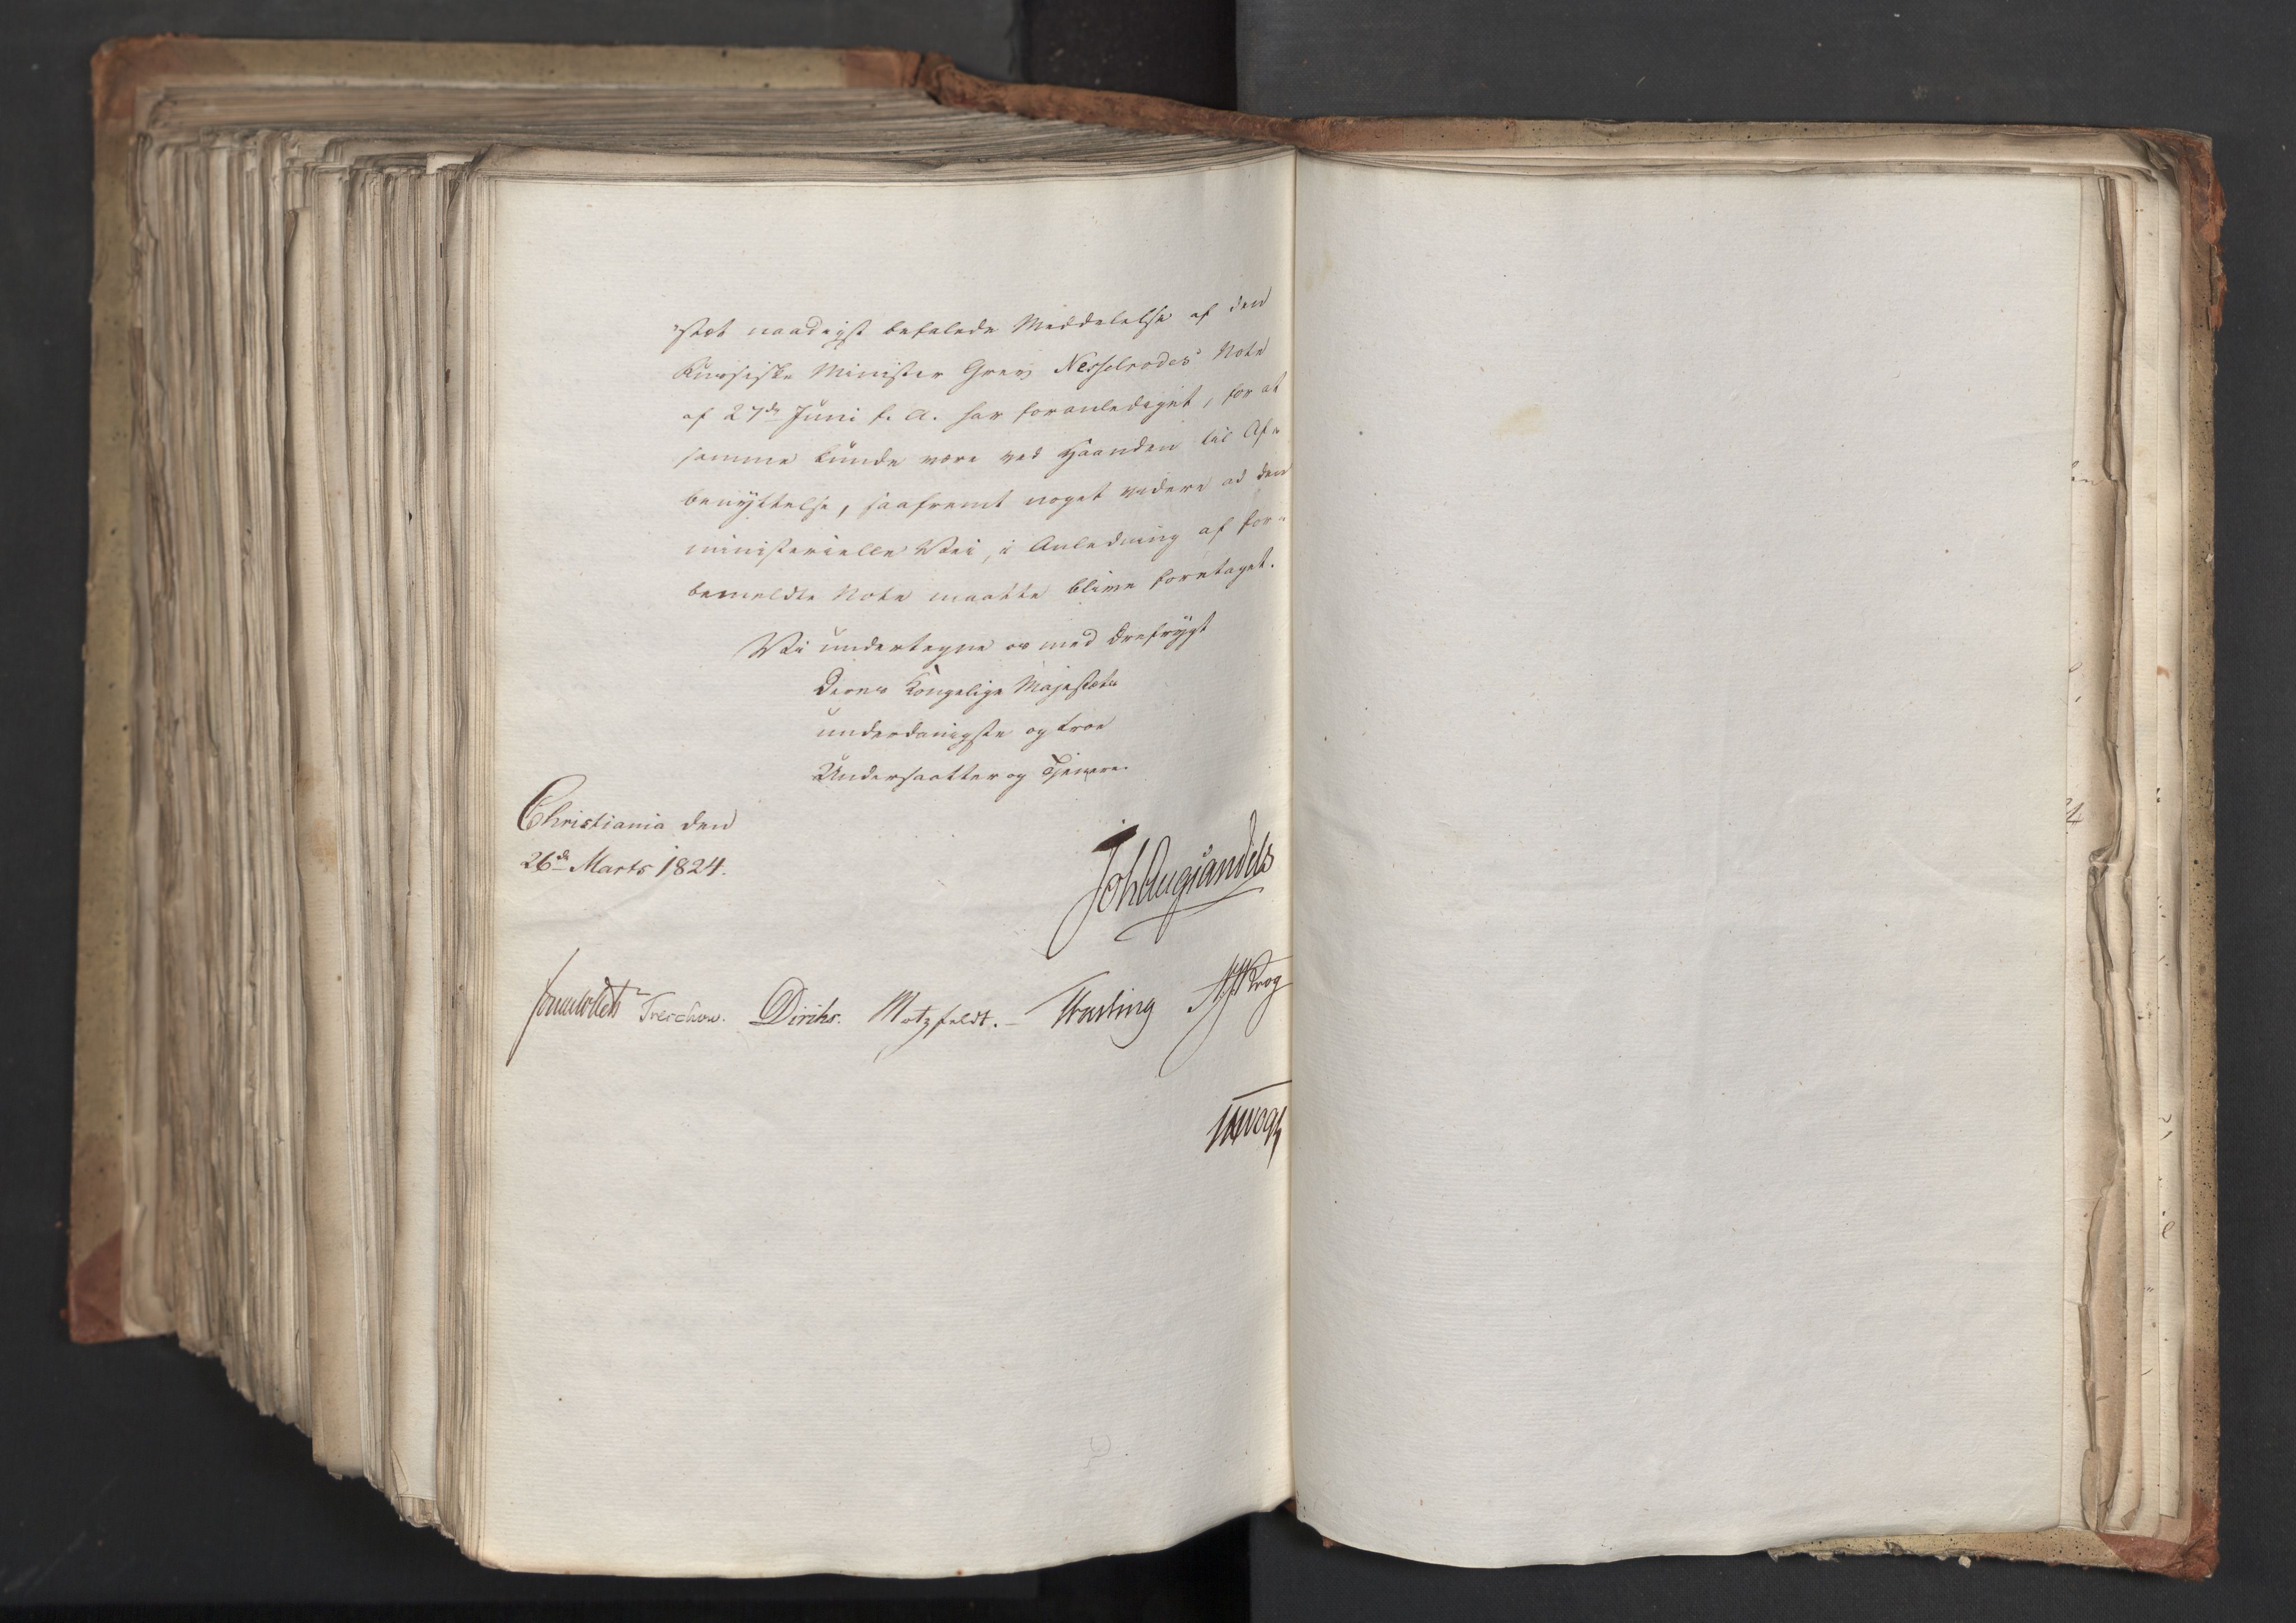 stæt naadigst befalede Meddelelse af den
Russiske Minister Grev Nesselrodes Note
af 27de Juni f. A. har foranlediget, for at
samme kunde være ved Haanden til Af-
benyttelse, saafremt noget videre ad den
ministerielle Vei, i Anledning af for-
bemeldte Note maatte blive foretaget.
Vi undertegne os med Ærefrygt
Deres Kongelige Majestæts
underdanigste og troe
Undersaatter og Tjenere.
Christiania den
26de Marts 1824.
Joh Aug Sandels
Sommerfeldt Treschow. Diriks. Motzfeldt. Fasting
Krog
Vogt